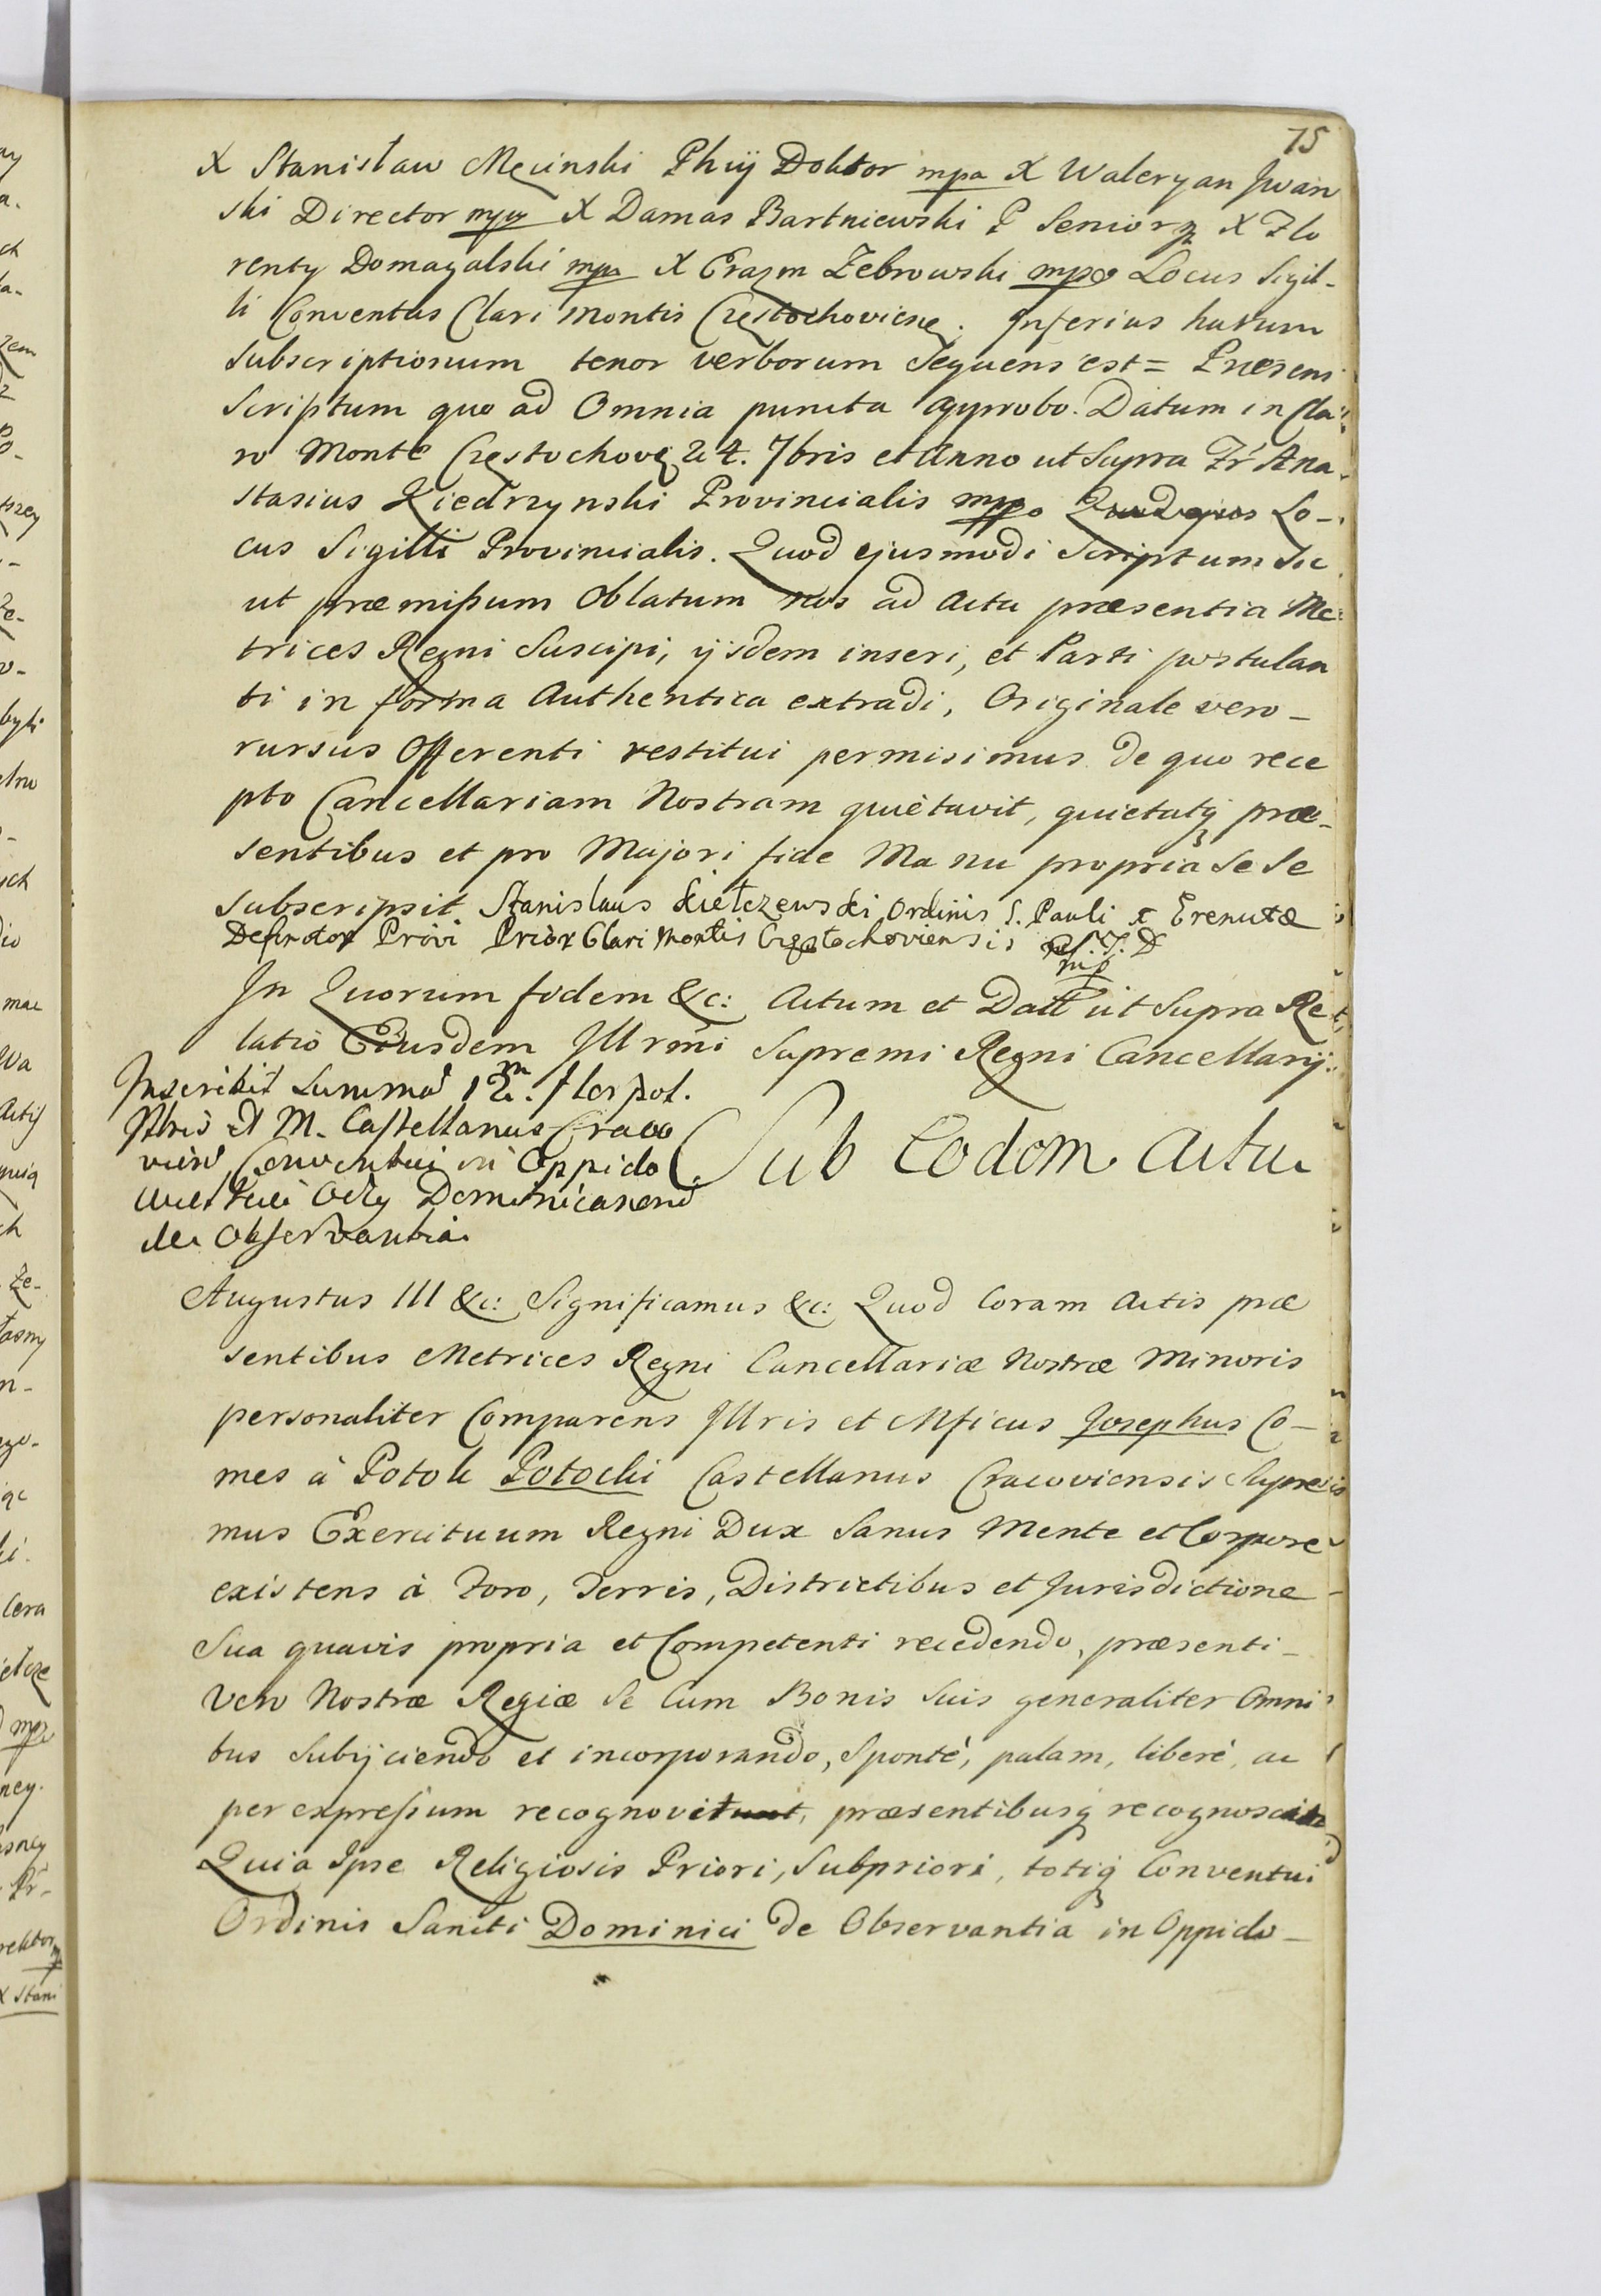 75
X Stanisław Męcinski Phiij Doktor mpa X Waleryan Jwan
ski Director mpa X Damas Bartniewski P Senior X Flo
renty Domagalski mpa X Erazm Zebrowski mpa Locus Sigil-
li Conventus Clari Montis Częstochoviensę. Inferius harum
subscriptionum tenor verborum Sequens est = Præsens
Scriptum quo ad Omnia puncta approbo. Datum in Cla
ro Monte Częstochovę 24. 7bris et Anno ut Supra Fr Ana
stasius Kiedrzynski Provincialis mpo Lo-
cus Sigilli Provincialis. Quod ejusmodi Scriptum Sic
ut præmißum Oblatum nos ad Acta præsentia Me
trices Regni Suscipi, ijsdem inseri, et Parti postulan
ti in forma Authentica extradi, Originale vero-
rursus Offerenti restitui permisimus de quo rece
pto Cancellariam Nostram quietavit, quietatq præ-
sentibus et pro Majori fide Manu propria Se Se
subscripsit Stanislaus Kiełczewski Ordinis S. Pauli Eremitæ
Definitor Prior Clari Montis Częstochoviensis
In Quorum fidem &c: Actum et Datt ut Supra Re
latio Ejusdem Jllrmi Supremi Regni Cancellarij
Inscribit Summa 12m. flor pol.
M. Castellanus Craco
vien Conventui in Oppido
Dominicanoru
de Observantia
Sub Eodem Actu
Augustus III &c: Significamus &c: Quod Coram Actis præ
sentibus Metrices Regni Cancellariæ Nostræ Minoris
personaliter Comparens Jllris et Mficus Josephus Co-
mes à Potok Potocki Castellanus Cracoviensis Supre
mus Exercituum Regni Dux Sanus Mente et Corpore
existens à Foro, Terris, Districtibus et Jurisdictione
Sua quavis propria et Competenti recedendo, præsenti-
Vero Nostræ Regiæ Se Cum Bonis Suis generaliter Omni
bus Subijciendo et incorporando, Sponté, palam, liberé, ac
per expreßum recognovit, præsentibusq recognoscit
Quia Ipse Religiosis Priori, Subpriori, totiq Conventui
Ordinis Sancti Dominici de Observantia in Oppido-